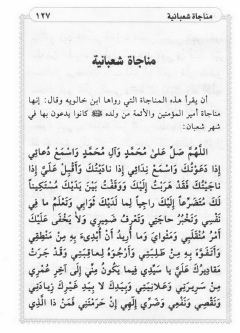 مناجاة شعبانية ١٢٧
مناجاة شعبانية
أن يقرأ هذه المناجاة التي رواها ابن خالويه وقال: إنها
مناجاة أمير المؤمنين والأئمة من ولده ﷺ كانوا يدعون بها في
شهر شعبان:
اللَّهُمَّ صَلِّ عَلىٰ مُحَمَّدٍ وَآلِ مُحَمَّدٍ وَاسْمَعْ دُعائِي
إِذا دَعَوْتُكَ وَاسْمَعْ نِدائِي إِذا نادَيْتُكَ وَأَقْبِلْ عَلَيَّ إِذا
ناجَيْتُكَ فَقَدْ هَرَبْتُ إِلَيْكَ وَوَقَفْتُ بَيْنَ يَدَيْكَ مُسْتَكِيناً
لَكَ مُتَضَرِّعاً إِلَيْكَ راجِياً لِما لَدَيْكَ ثَوابِي وَتَعْلَمُ ما فِي
نَفْسِي وَتَخْبُرُ حاجَتِي وَتَعْرِفُ ضَمِيرِي وَلا يَخْفىٰ عَلَيْكَ
أَمْرُ مُنْقَلَبِي وَمَثْوايَ وَما أُرِيدُ أَنْ أُبْدِئَ بِهِ مِنْ مَنْطِقِي
وَأَتَفَوَّهُ بِهِ مِنْ طَلِبَتِي وَأَرْجُوهُ لِعاقِبَتِي وَقَدْ جَرَتْ
مَقادِيرُكَ عَلَيَّ يا سَيِّدِي فِيما يَكُونُ مِنِّي إِلىٰ آخِرِ عُمْرِي
مِنْ سَرِيرَتِي وَعَلانِيَتِي وَبِيَدِكَ لا بِيَدِ غَيْرِكَ زِيادَتِي
وَنَقْصِي وَنَفْعِي وَضَرِّي إِلٰهِي إِنْ حَرَمْتَنِي فَمَنْ ذَا الَّذِي